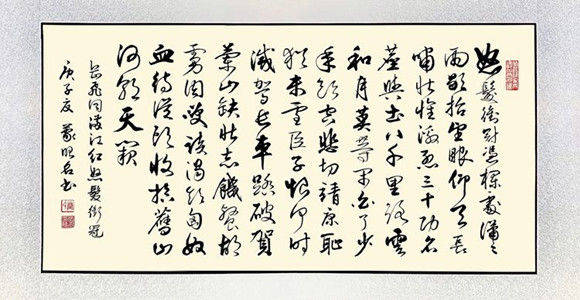 怒髮衝冠憑欄處瀟々
雨歇抬望眼仰天長
嘯壯懷激烈三十功名
塵與土八千里路雲
和月莫等閒白了少
年頭空悲切靖康恥
猶未雪臣子恨何時
滅駕長車踏破賀
蘭山缺壯志饑餐胡
虜肉笑談渴飲匈奴
血待從頭收拾舊山
河朝天闕
岳飛詞滿江紅怒髮衝冠
庚子夏書